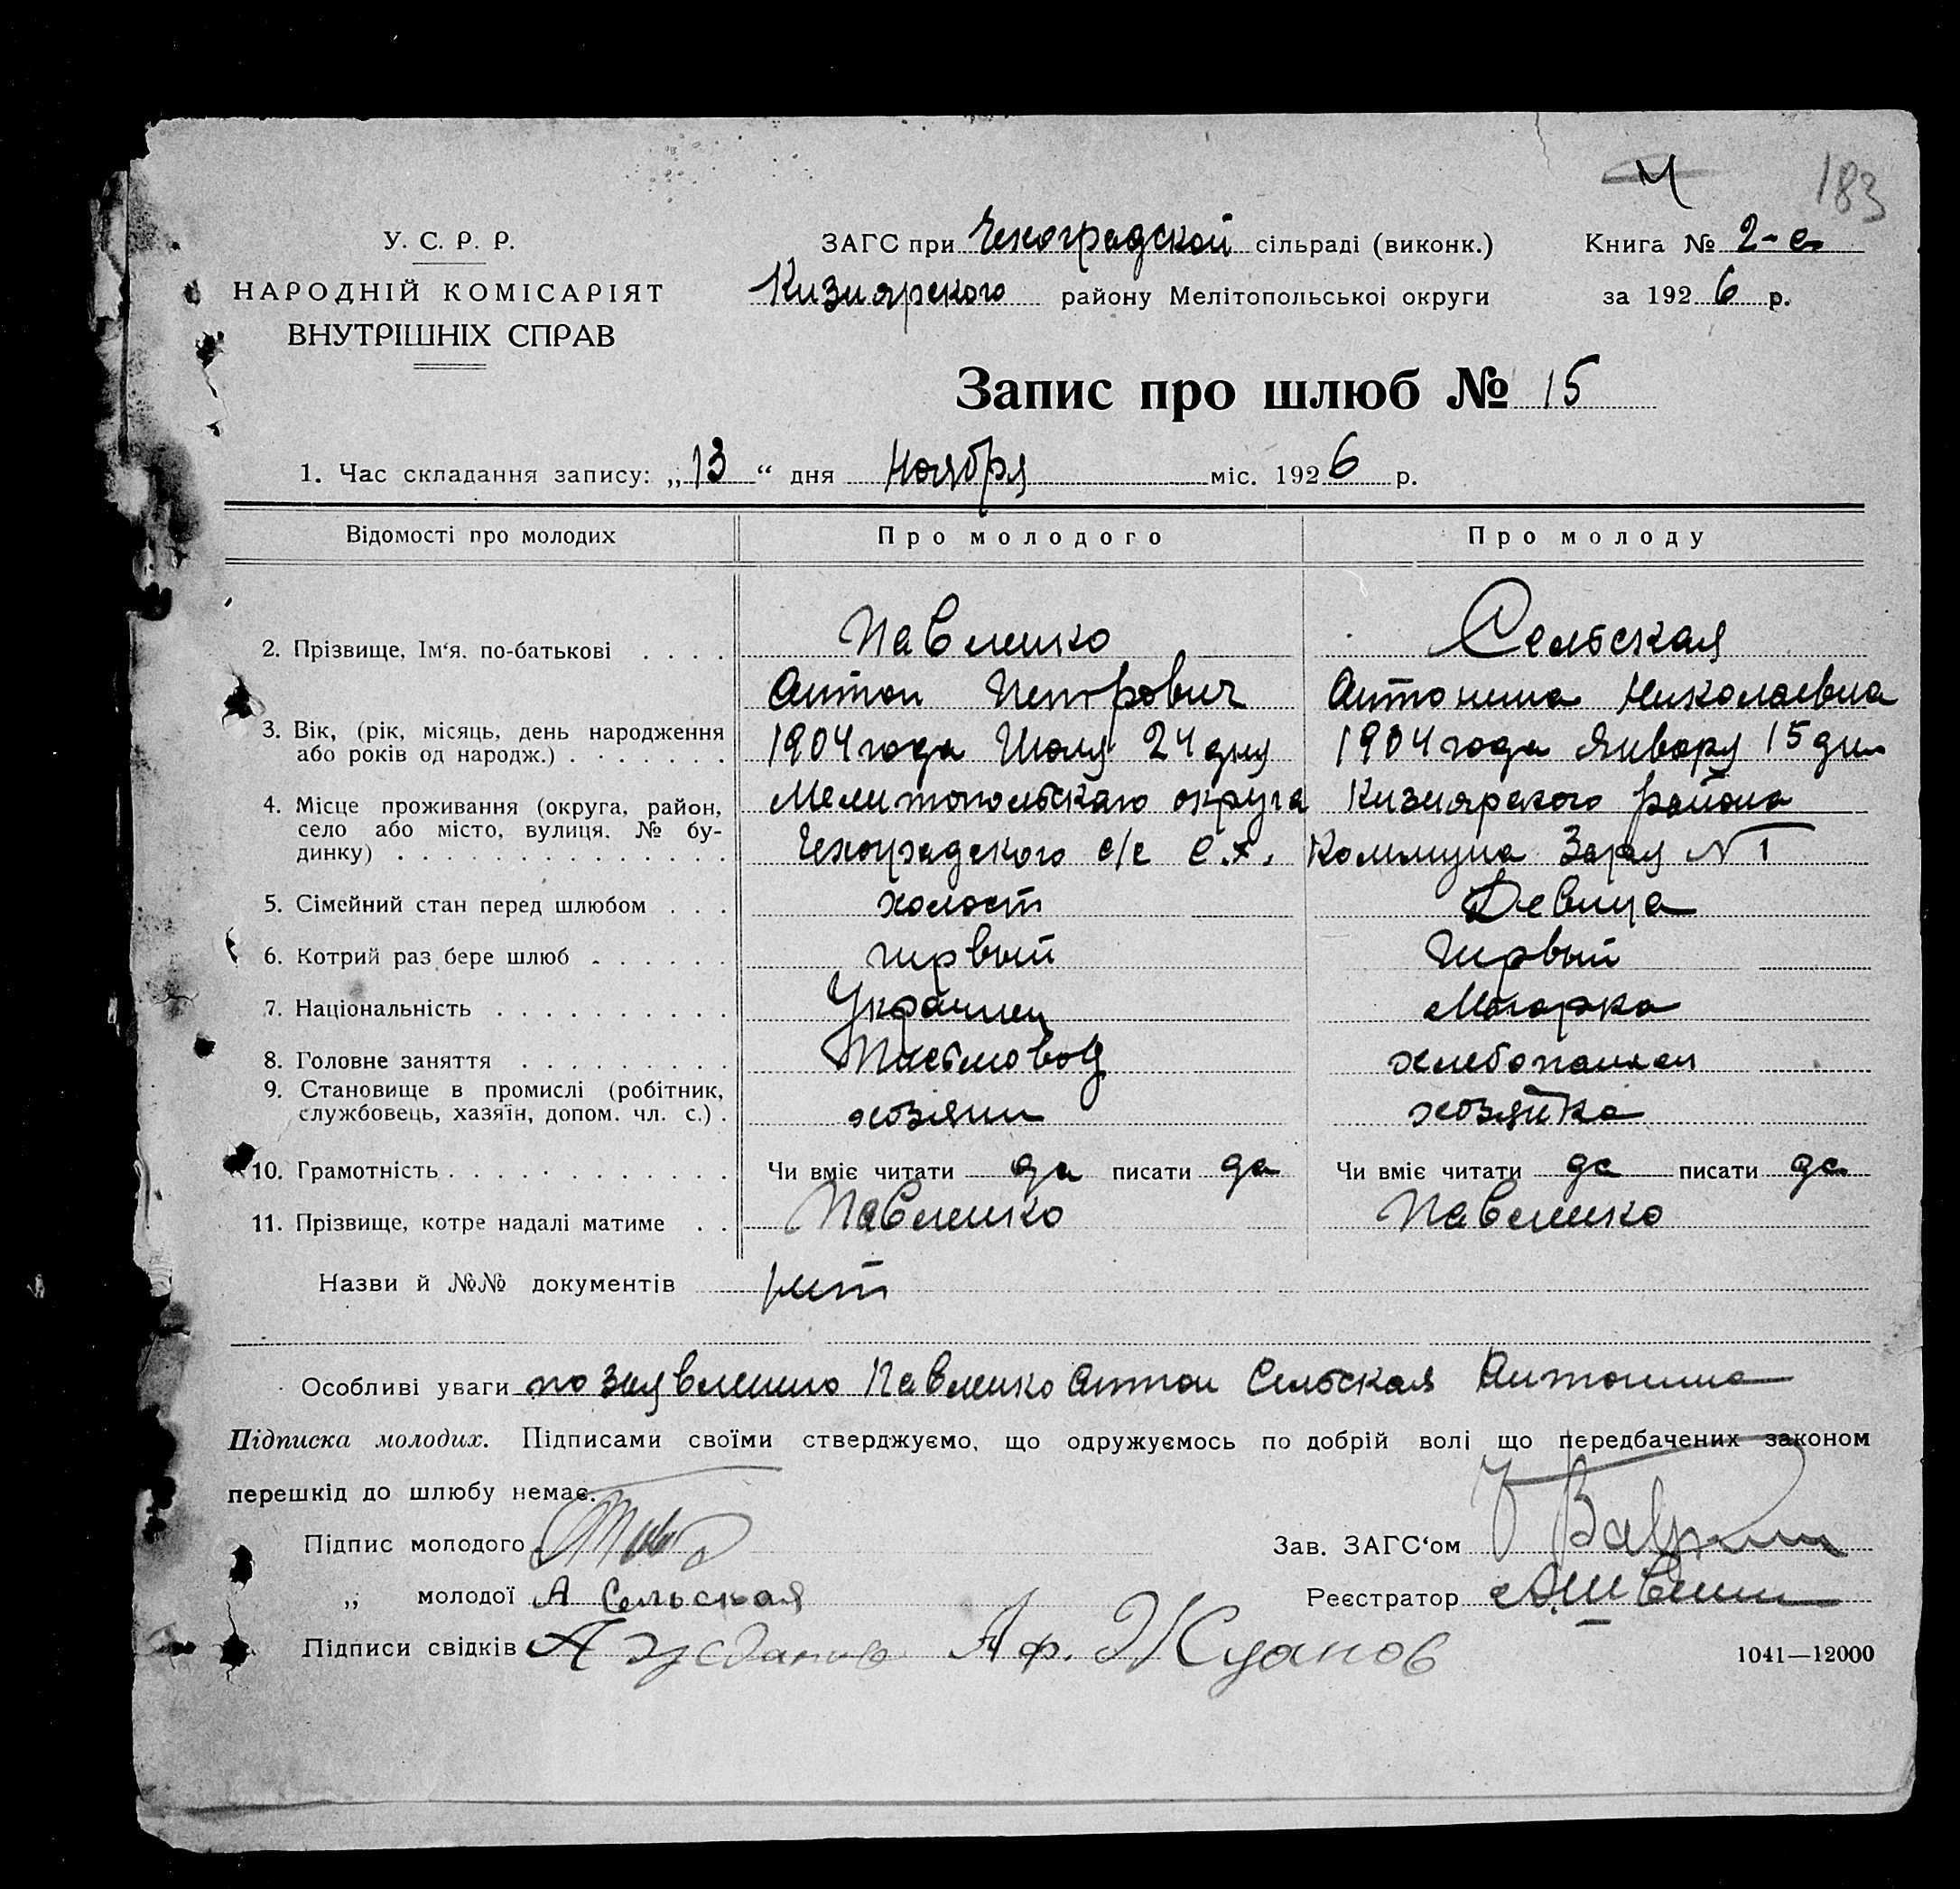 183
У. С. Р. Р.
НАРОДНІЙ КОМІСАРІЯТ
ВНУТРІШНІХ СПРАВ
ЗАГС при Чехоградской сільраді (виконк.)
Кизиярского району Мелітопольської округи
Книга № 2-е
за 1926 р.
Запис про шлюб № 15
1. Час складання запису: „13“ дня Ноября міс. 1926 р.
Відомості про молодих Про молодого Про молоду
2. Прізвище, Ім‘я, по-батькові Павленко Сельская
Антон Петрович Антонина Николаевна
3. Вік, (рік, місяць, день народження
або років од народж.) 1904 года Июля 24 дня 1904 года Января 15 дня
4. Місце проживання (округа, район,
село або місто, вулиця, № бу-
динку)
Мелитопольскаго округа Кизиярского района
Чехоградского с/с с.х. Коммуна Заря № 1
5. Сімейний стан перед шлюбом холост Девица
6. Котрий раз бере шлюб первый Первый
7. Національність Украинец
8. Головне заняття хлебопашец
9. Становище в промислі (робітник,
службовець, хазяїн, допом. чл. с.) хозяин хозяйка
10. Грамотність Чи вміє читати да писати да Чи вміє читати да писати да
11. Прізвище, котре надалі матиме Павленко Павленко
Назви й №№ документів нет
Особливі уваги по заявлению Павленко Антон Сельская Антонина
Підписка молодих. Підписами своїми стверджуємо, що одружуємось по добрій волі що передбачених законом
перешкід до шлюбу немає.
Підпис молодого
„ молодої А Сельская
Підписи свідків А Жданов Аф. Жданов
Зав. ЗАГС‘ом
Реєстратор
1041—12000